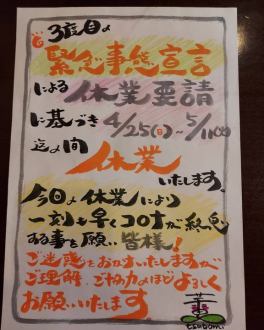 3度目の
緊急事態宣言
による休業要請
に基づき4/25(日)~5/11(火)
迄の間
休業
いたします。
今回の休業により
一刻も早くコロナが終息
する事を願い皆様!
ご迷惑をおかけいたしますが
ご理解、ご協力のほどよろしく
お願いいたします
tsubomi